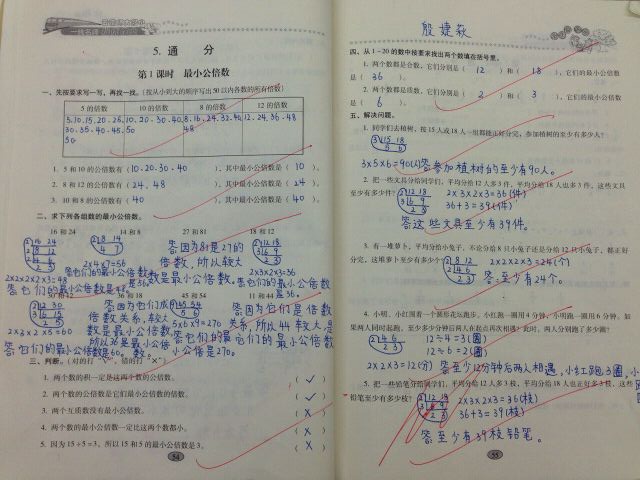 5. 通 分
第1课时 最小公倍数
一、先按要求写一写，再找一找。(按从小到大的顺序写出50以内各数的所有倍数)
5的倍数 10的倍数 8的倍数 12的倍数
5.10.15.20.25. 10.20.30.40. 8.16.24.32.40. 12.24.36.48
30.35.40.45. 50 48
50
1. 5和10的公倍数有( 10.20.30.40 ),其中最小公倍数是( 10 )。
2. 8和12的公倍数有( 24.48 ),其中最小公倍数是( 24 )。
3. 10和8的公倍数有( 40 ),其中最小公倍数是( 40 )。
二、求下列各组数的最小公倍数。
16和24 14和8 27和81 18和12
2 14 8
4 7
2 18 12
2×4×7=56
答因为81是27的
倍数,所以较大
数是最小公倍数。
2×3×2×3=36
答:它们的最小公倍数
是36。
36和18 45和54 11和44
2 12 30
3 6 15
2×3×2×5=60
答:它们的最小公倍数是60。
答因为它们成
倍数关系,较大
数是最小公倍数
所以36是最小公倍
数。
5×6×9=270
答因为它们是倍数
关系,所以44较大,是
三、判断。(对的打“√”,错的打“×”)
1. 两个数的积一定是这两个数的公倍数。 ( √ )
2. 两个数的公倍数是它们最小公倍数的倍数。 ( √ )
3. 两个互质数没有最小公倍数。 ( X )
4. 两个数的最小公倍数一定比这两个数都小。 ( X )
5. 因为15÷5=3，所以15和5的最小公倍数是3。 ( X )
54
殷婕荻
四、从1~20的数中按要求找出两个数填在括号里。
1. 两个数都是合数，它们分别是( 12 )和( 18 ),它们的最小公倍数
是( 36 )。
2. 两个数都是质数，它们分别是( 2 )和( 3 ),它们的最小公倍
数是( 6 )。
五、解决问题。
1. 同学们去植树，按15人或18人一组都能正好分完，参加植树的至少有多少人?
3 15 18
5 6
3×5×6=90(人) 答:参加植树的至少有90人。
2. 把一些文具分给同学们，平均分给12人多3件，平均分给18人也多3件，这些文具
至少有多少件?
2 12 18
3 6 9
2 3
2×3×2×3=36(件)
36+3=39(件)
答这些文具至少有39件。
3. 有一堆萝卜，平均分给小兔子，不论分给8只小兔子还是分给12只小兔子，都正好
分完，这堆萝卜至少有多少个?
2 8 12
2 4 6
2 3
2×2×2×3=24(个)
答:至少有24个。
4. 小明、小红围着一个圆形花坛跑步，小红跑一圈用4分钟，小明跑一圈用6分钟。如
果两人同时起跑，至少多少分钟后两人在起点再次相遇?此时，两人分别跑了多少圈?
2 4 6
2 3
12÷4=3(圈)
12÷6=2(圈)
2×2×3=12(分) 答至少12分钟后两人相遇,小红跑3圈,小
5. 把一些铅笔分给同学们，平均分给12人多3枝，平均分给18人也正好多3枝，这些
铅笔至少有多少枝?
2 12 18
3 6 9
2 3
2×3×2×3=36(枝)
36+3=39(枝)
答至少有39枝铅笔。
55